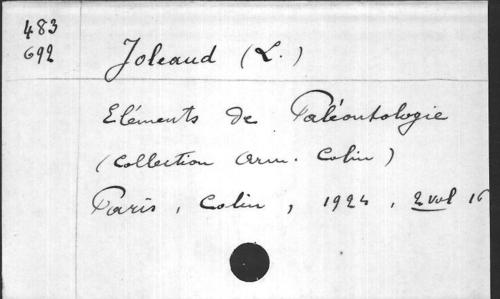 483
692
Joleaud (L.)
Eléments de Paléontologie
(Collection Arm. Colin)
Paris, Colin, 1924, 2 vol 16